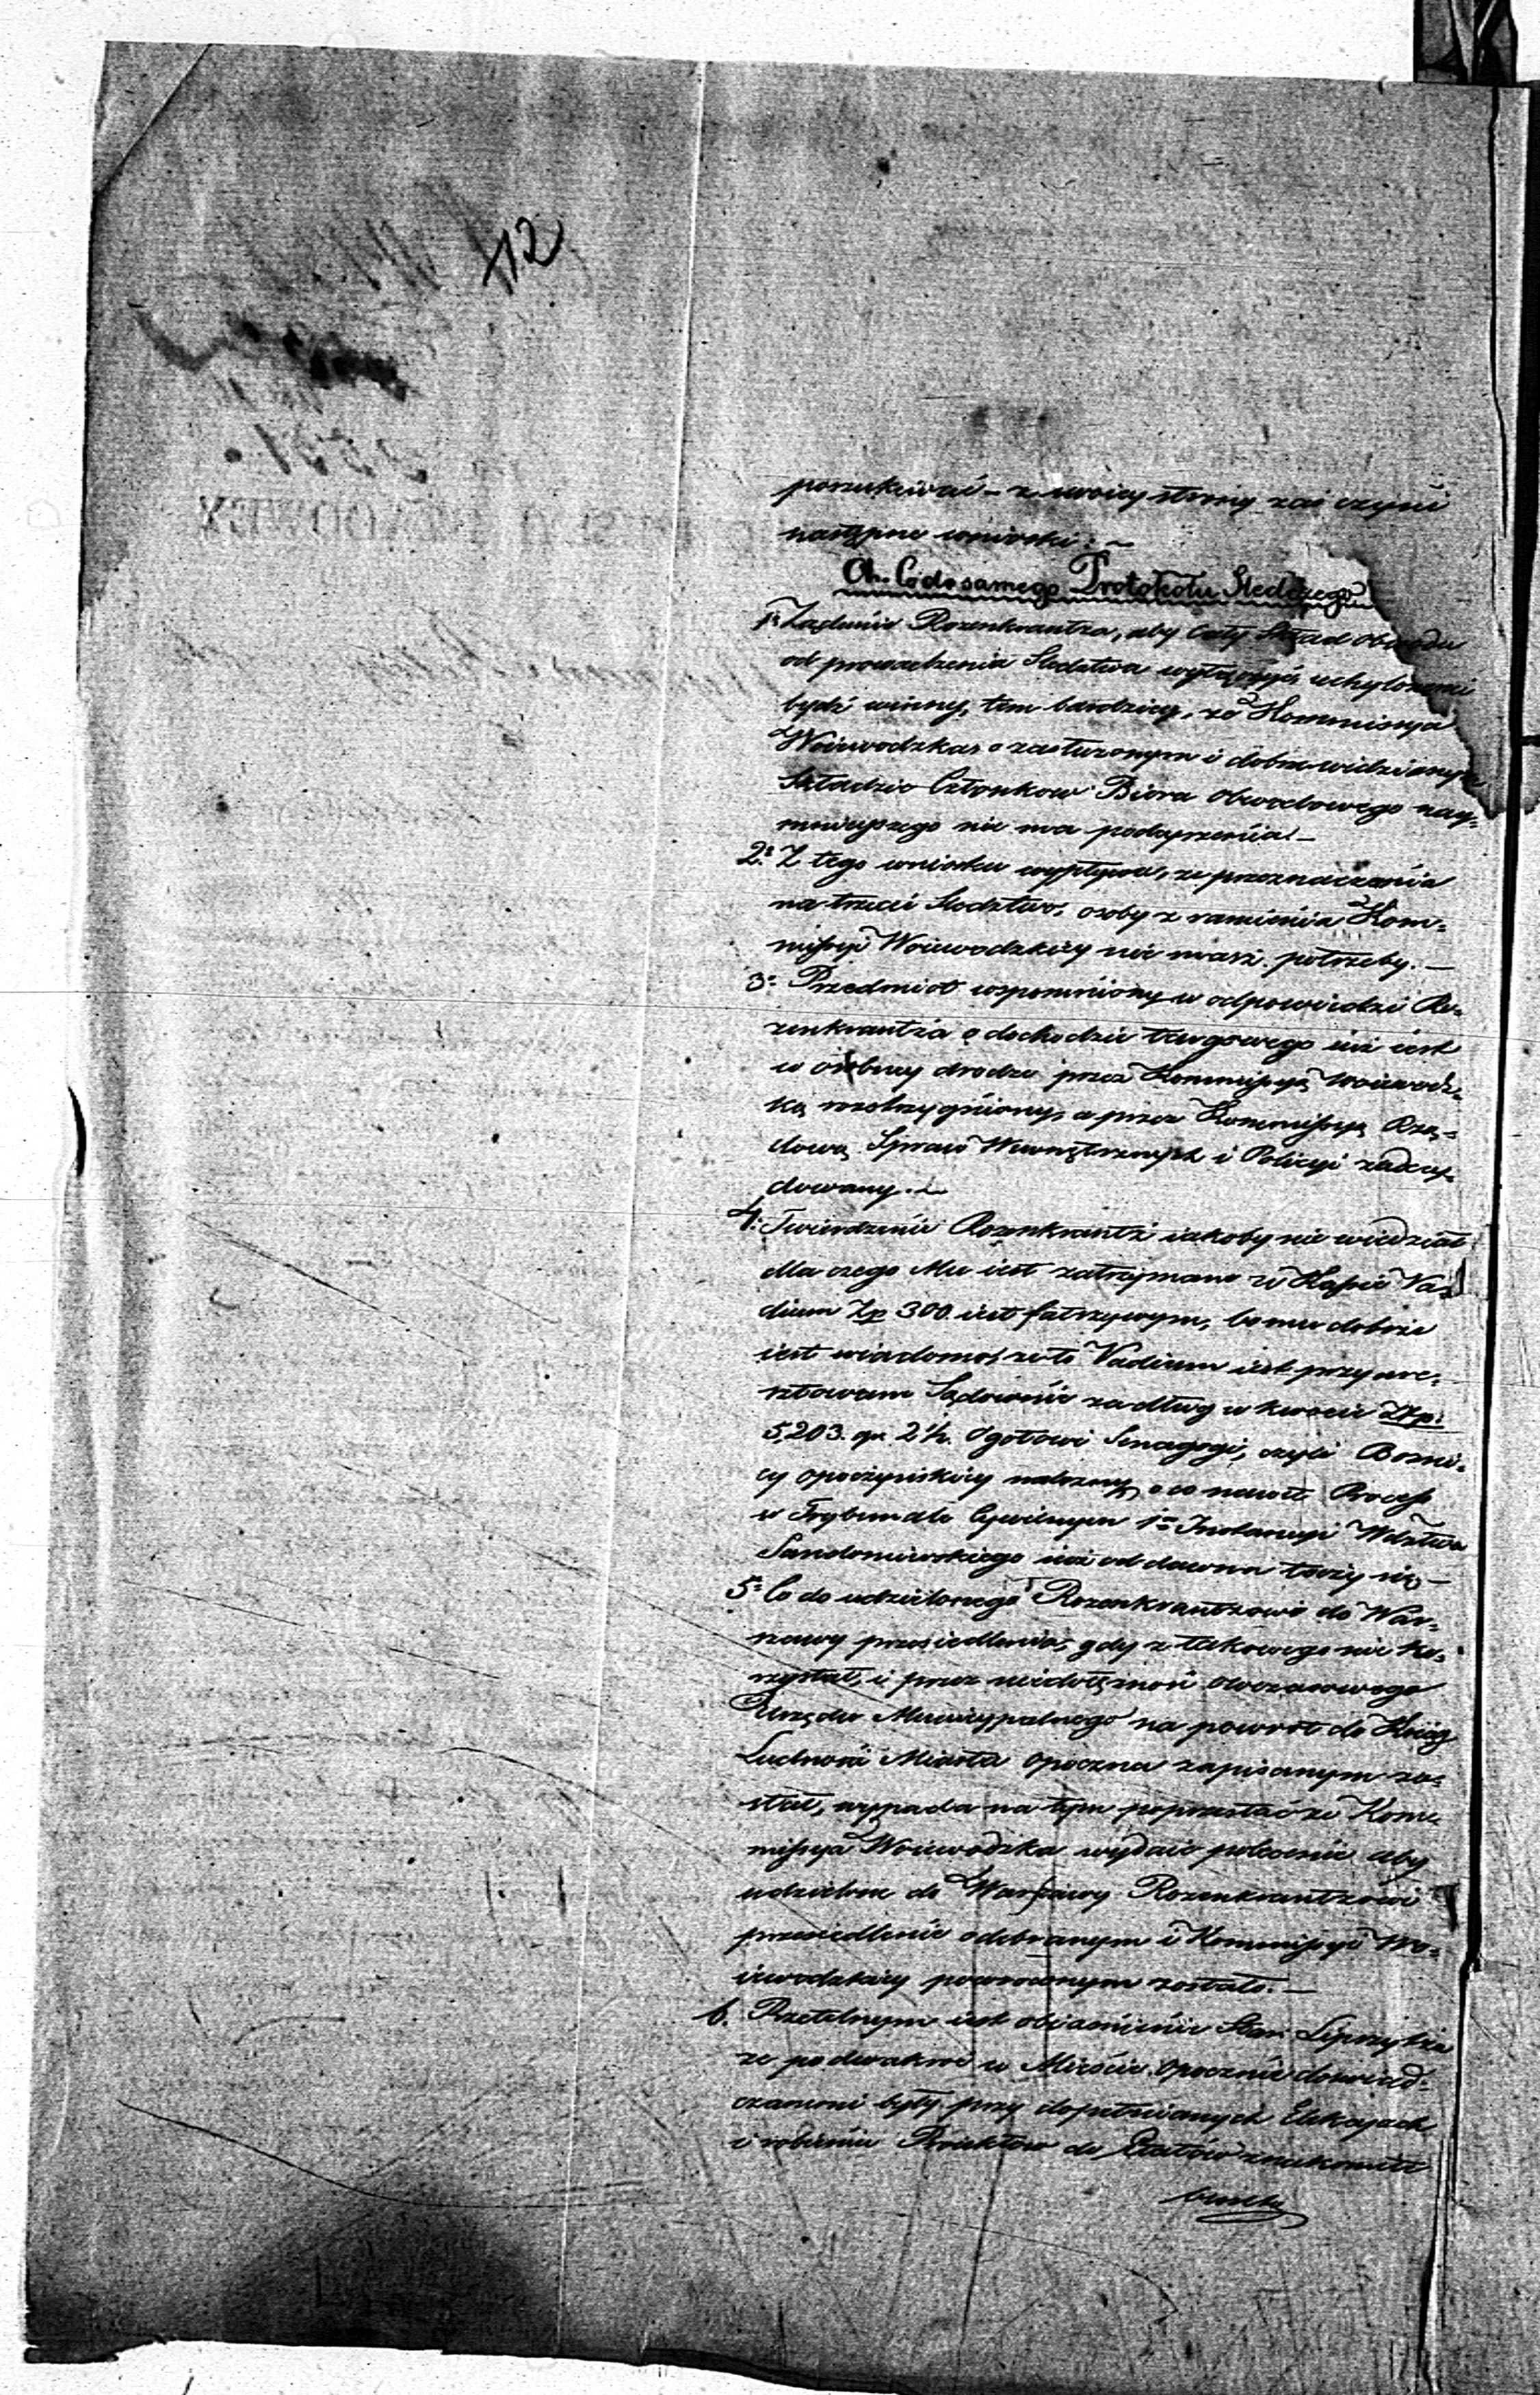 12
poszukiwać – z swoiey strony zaś czyni
następne wnioski: ~
A. Co do samego Protokołu Śledczego
1. Żądanie Rozenkrantza, aby Cały Skład Obwodu
od prowadzenia Śledztwa wyłączyć, uchylonemi
bydź winny, tem bardziey, że Kommissya
Woiewodzka, o zasłużonym i dobrze widzianym
Składzie Członków Biora Obwodowego nay-
mnieyszego nie ma podeyrzenia. –
2. Z tego wniosku wypływa, że przeznaczenia
na trzecie Śledztwo, osoby z ramienia Kom-
missyi Woiewodzkiey nie masz potrzeby. –
3. Przedmiot wspomniony w odpowiedzi Ro-
zenkrantza o dochodzie targowego iuż iest
w osobney drodze przez Kommissyą Woiewodz-
ką rozstrzygniony, a przez Kommissyą Rzą-
dową Spraw Wewnętrznych i Policyi zadecy-
dowany. –
4. Twierdzenie Rozenkrantz iakoby nie wiedział
dla czego Mu iest zatrzymane w Kassie Va-
dium Zp 300 iest fałszywym, bo mu dobrze
iest wiadomo, że to Vadium iest przy are-
sztowane Sądownie za dług w kwocie Złp:
5,203. gr. 2½. Ogołowi Senagogi, czyli Bożni-
cy opoczyńskiey należny, o co nawet Process
w Trybunale Cywilnym 1ey Instancyi Wdztwa
Sandomirskiego iuż od dawna toczy się –
5. Co do udzielonego Rozenkrantzowi do War-
szawy przesiedlenia, gdy z takowego nie ko-
rzystał, i przez niedołężność owczasowego
Urzędu Municypalnego na powrot do Ksiąg
Ludności Miasta Opoczna zapisanym zo-
stał, wypada na tym poprzestać że Kom-
missya Woiewodzka wydaie polecenie aby
udzielone do Warszawy Rozenkrantzowi
przesiedlenie odebranym i Kommissyi Wo-
iewodzkiey powroconym zostało. –
6. Rzetelnym iest obiaśnienie Star. Lipszytza
że podwakroć w Mieście Opocznie doświad-
czanemi były przy dopełnianych Elekcyach
i robieniu Proiektow do Etatów znakomite